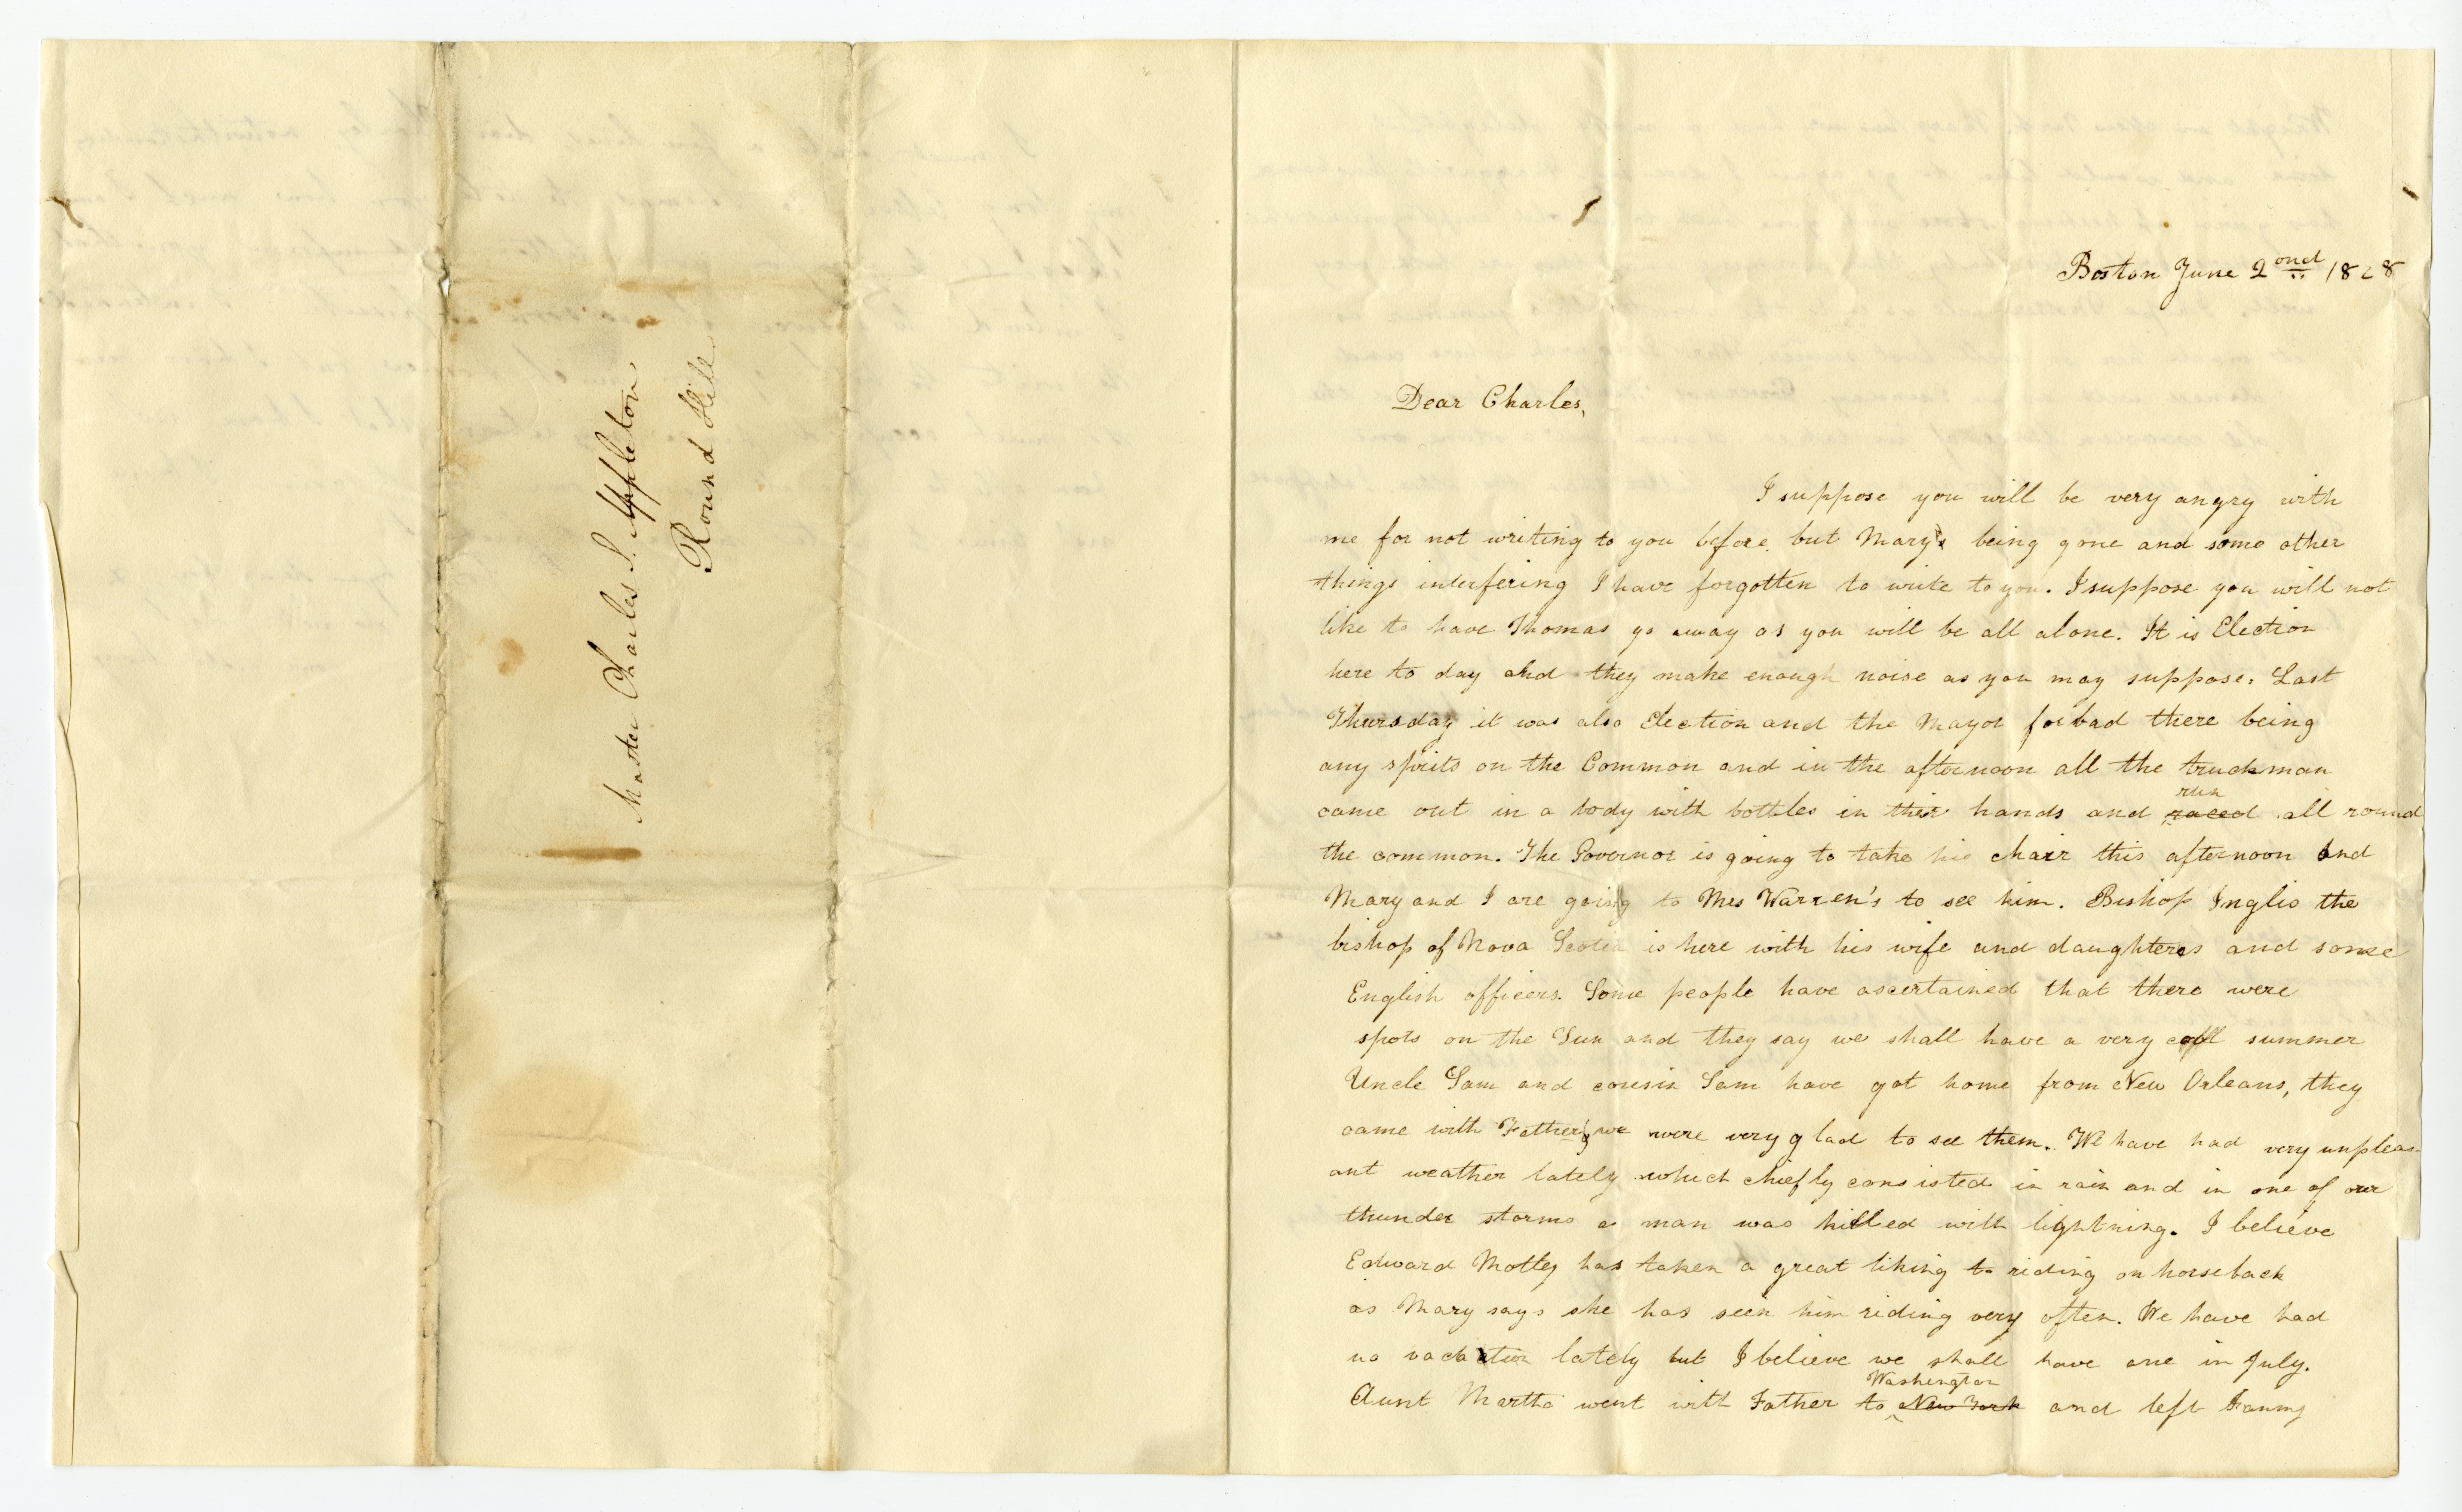 Master Charles S. Appleton
Round Hill
Boston June 2ond 1828
Dear Charles,
I suppose you will be very angry with
me for not writing to you before but Mary's being gone and some other
things interfering I have forgotten to write to you. I suppose you will not
like to have Thomas go away as you will be all alone. It is Election
here to day and they make enough noise as you may suppose. Last
Thursday it was also Election and the Mayor forbad there being
any spirits on the Common and in the afternoon all the truckman
came out in a body with bottles in their hands and raced run all round
the common. The Governor is going to take his chair this afternoon and
Mary and I are going to Mrs Warren's to see him. Bishop Inglis the
bishop of Nova Scotia is here with his wife and daughters and some
English officers. Some people have ascertained that there were
spots on the Sun and they say we shall have a very cool summer
Uncle Sam and cousin Sam have got home from New Orleans, they
came with Father, we were very glad to see them. We have had very unpleas-
ant weather lately which chiefly consisted in rain and in one of our
thunder storms a man was killed with lightning. I believe
Edward Motley has taken a great liking to riding on horseback
as Mary says she has seen him riding very often. We have had
no vacation lately but I believe we shall have one in July.
Aunt Martha went with Father to New York Washington and left Fanny